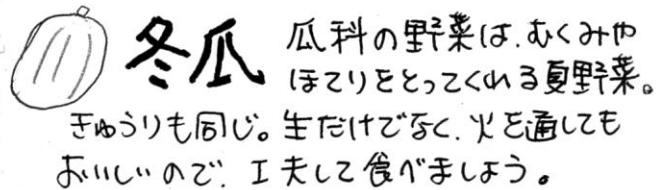 冬瓜
瓜科の野菜は、むくみや
ほてりをとってくれる夏野菜。
きゅうりも同じ。生だけでなく、火を通しても
おいしいので、工夫して食べましょう。